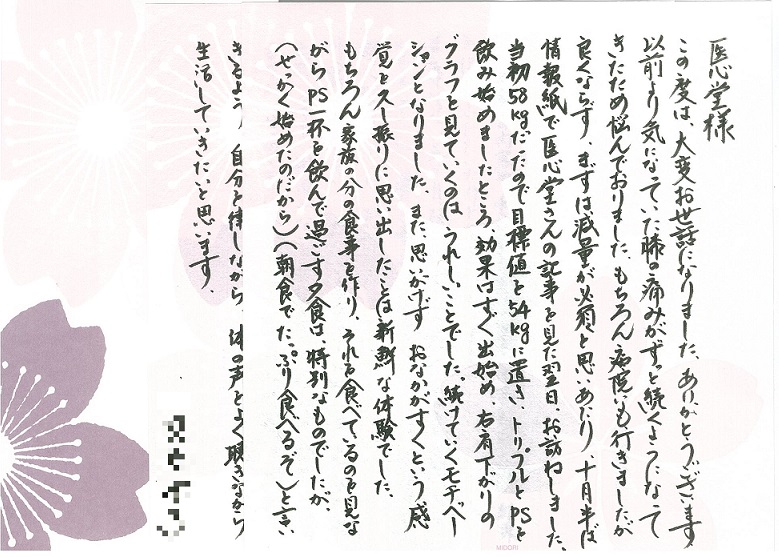 医心堂様
この度は、大変お世話になりました。ありがとうございます
以前より気になっていた膝の痛みがずっと続くようになって
きたため悩んでおりました。もちろん病院にも行きましたが
良くならず、まずは減量が必須と思いあたり、十月半ば
情報紙で医心堂さんの記事を見た翌日、お訪ねしました。
当初58kgだったので目標値を54kgに置き、トリプルとPSを
飲み始めましたところ、効果はすぐ出始め、右肩下がりの
グラフを見ていくのは、うれしいことでした。続けていくモチベー
ションとなりました。また、思いがけず おなかがすくという感
覚を久し振りに思い出したことは新鮮な体験でした。
もちろん家族の分の食事を作り、それを食べているのを見な
がらPS一杯を飲んで過ごす夕食は、特別なものでしたが、
(せっかく始めたのだから)(朝食でたっぷり食べるぞ)と言い
きるよう、自分を律しながら、体の声をよく聴きながら
生活していきたいと思います。
MIDORI